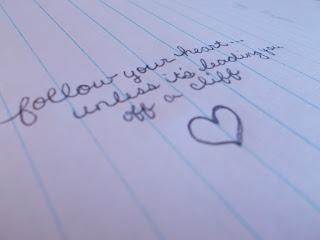 follow your heart...
unless it's leading you
off a cliff